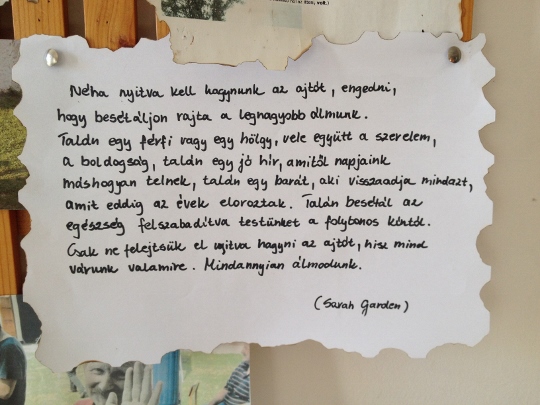 Néha nyitva kell hagynunk az ajtót, engedni,
hogy besétáljon rajta a legnagyobb álmunk.
Talán egy férfi vagy egy hölgy, vele együtt a szerelem,
a boldogság, talán egy jó hír, amitől napjaink
máshogyan telnek, talán egy barát, aki visszaadja mindazt,
amit eddig az évek eloroztak. Talán besétál az
egészség felszabadítva testünket a folytonos kíntól.
Csak ne felejtsük el nyitva hagyni az ajtót, hisz mind
várunk valamire. Mindannyian álmodunk.
(Sarah Garden)